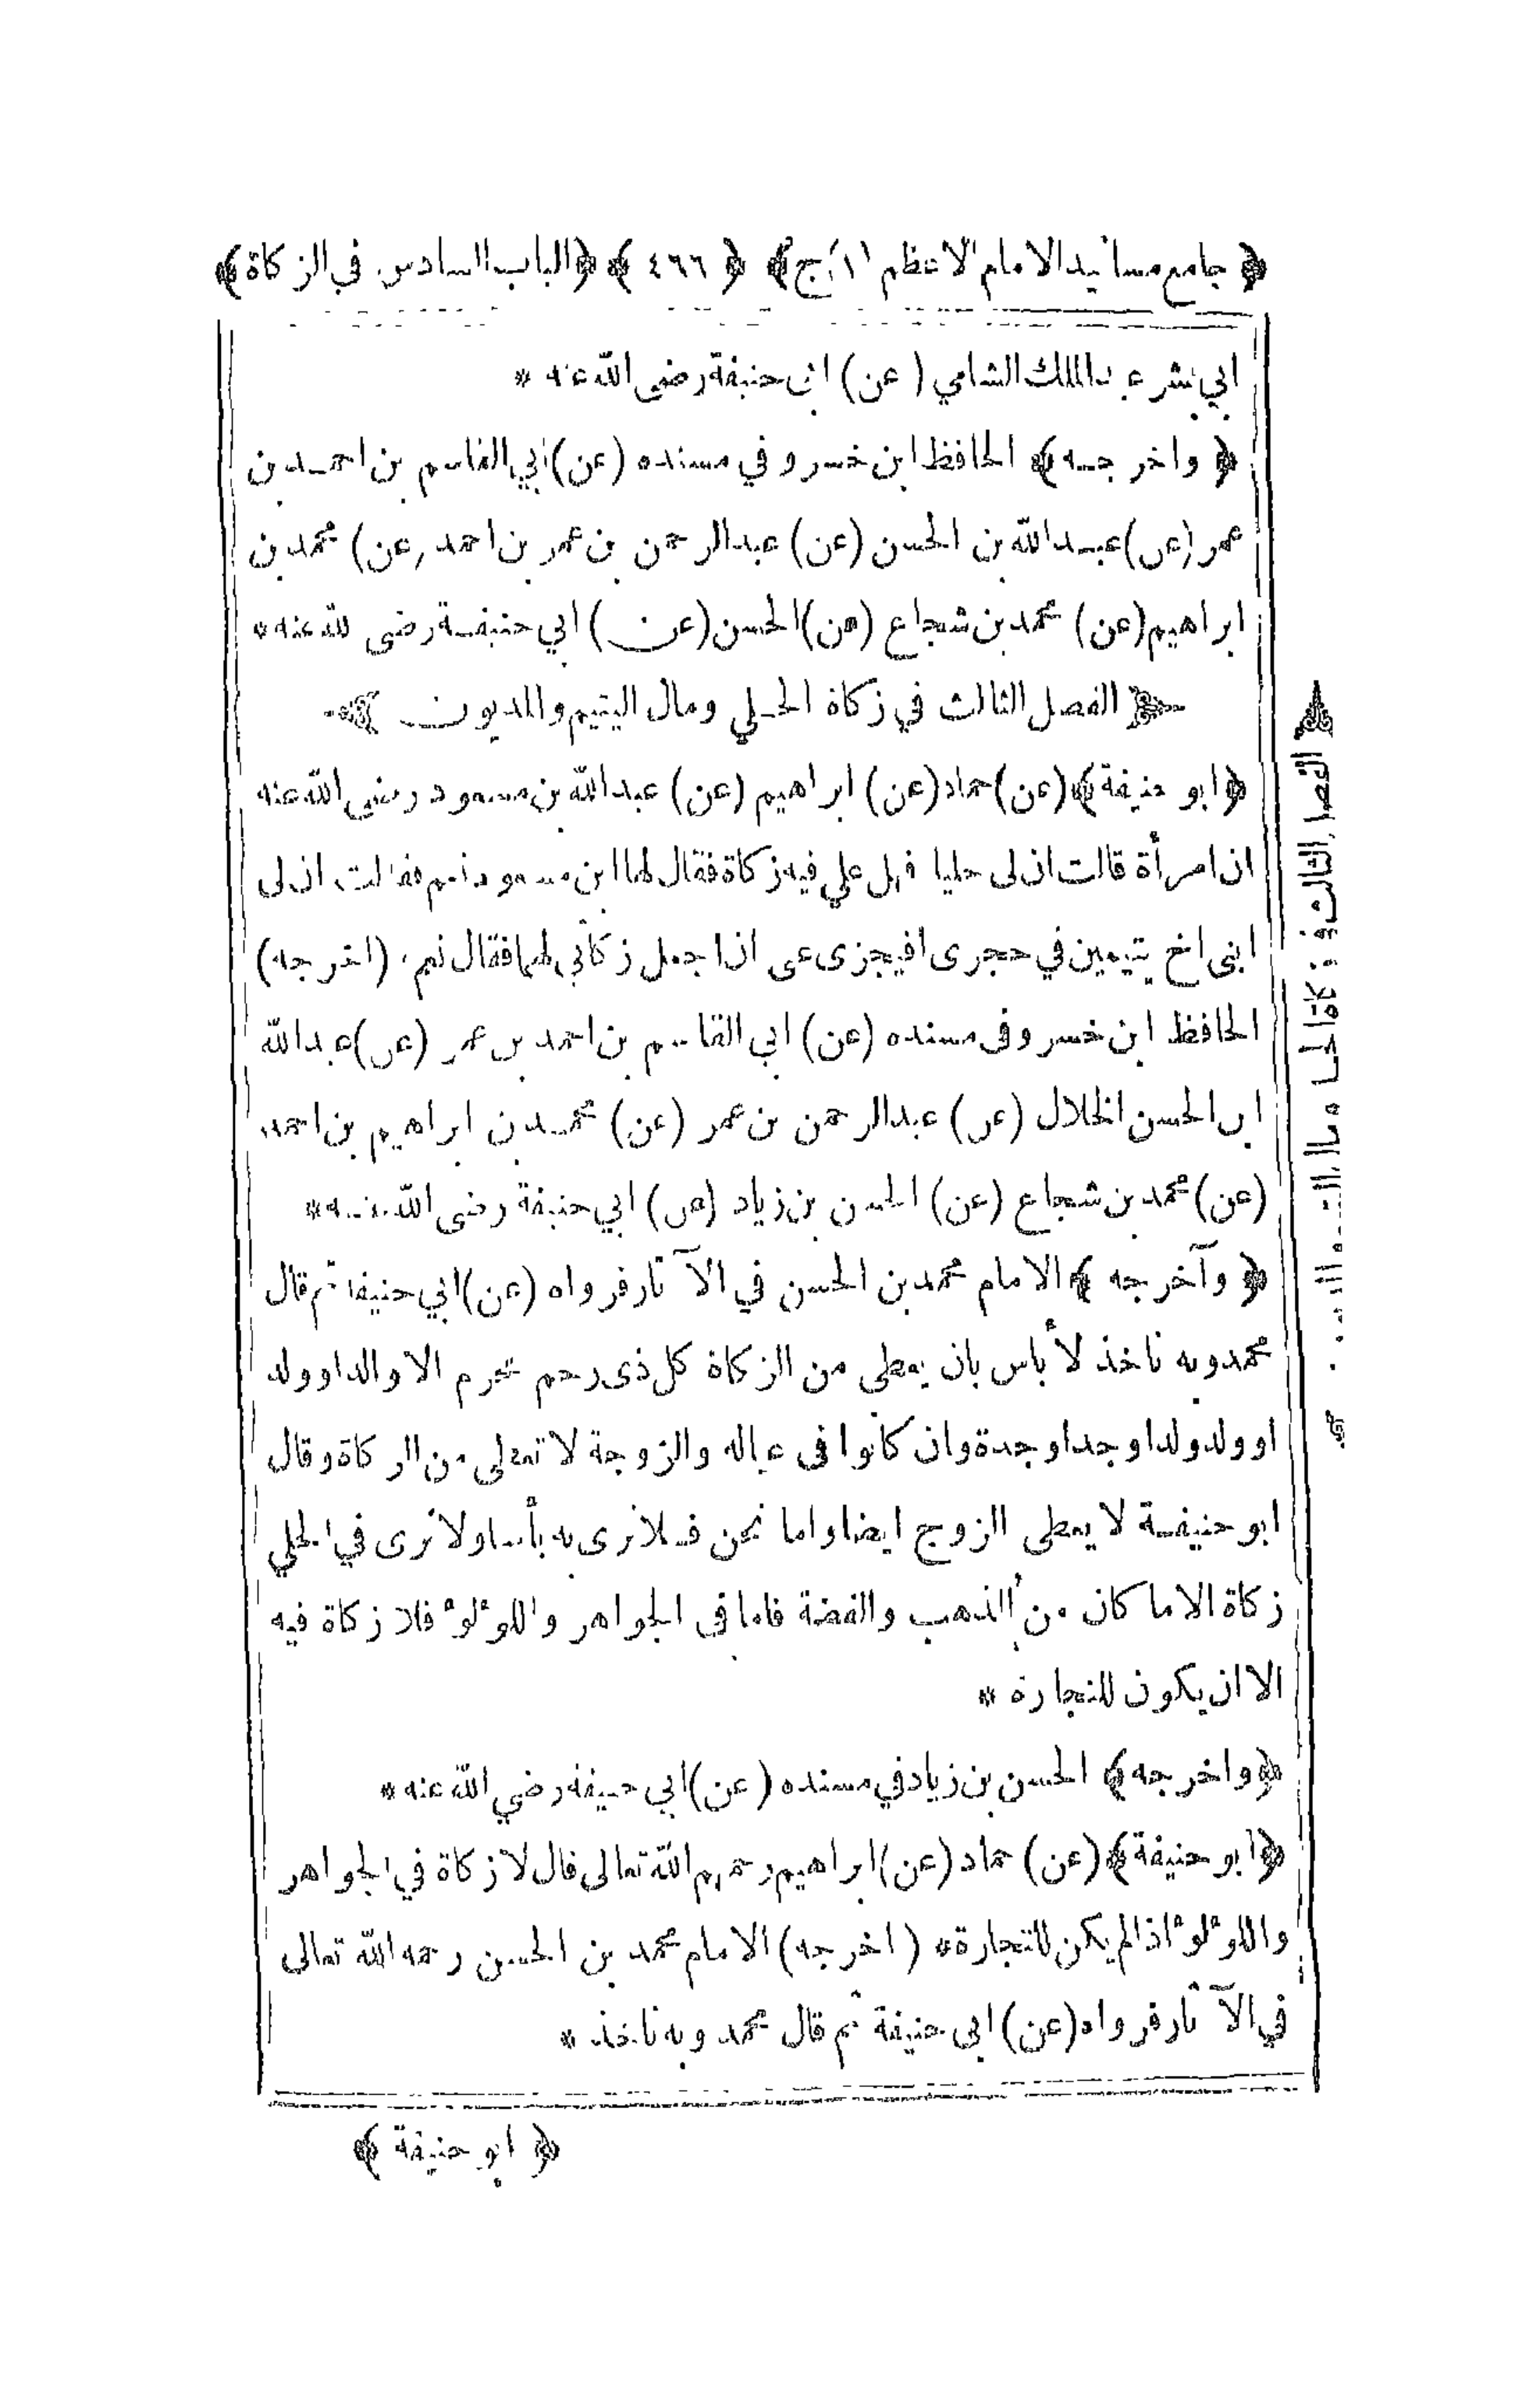 ﴿ جامع مسانيد الامام الاعظم ج ١ ﴾ ﴿ ٤٦٦ ﴾ ﴿ الباب السادس في الزكاة ﴾
ابي بشر عبد الملك الشامي ( عن ) ابى حنيفة رضى الله عنه *
﴿ واخرجه ﴾ الحافظ ابن خسرو في مسنده (عن) ابي القاسم بن احمد بن
عمر (عن) عبد الله بن الحسن (عن) عبد الرحمن بن عمر بن احمد (عن) محمد بن
ابراهيم (عن) محمد بن شجاع (عن) الحسن (عن) ابي حنيفة رضى الله عنه *
الفصل الثالث في زكاة الحلي ومال اليتيم والمديون
﴿ ابو حنيفة ﴾ (عن) حماد (عن) ابراهيم (عن) عبد الله بن مسعود رضى الله عنه
ان امرأة قالت ان لى حليا فهل علي فيه زكاة فقال لها ابن مسعود نعم فقالت ان لى
ابنى اخ يتيمين في حجرى افيجزى عنى ان اجعل زكاتي لهما فقال نعم . (اخرجه)
الحافظ ابن خسرو فى مسنده (عن) ابي القاسم بن احمد بن عمر (عن) عبد الله
ابن الحسن الخلال (عن) عبد الرحمن بن عمر (عن) محمد بن ابراهيم بن احمد
(عن) محمد بن شجاع (عن) الحسن بن زياد (عن) ابي حنيفة رضى الله عنه *
﴿ وآخرجه ﴾ الامام محمد بن الحسن في الآثار فرواه (عن) ابي حنيفة ثم قال
محمد وبه ناخذ لا بأس بان يعطى من الزكاة كل ذى رحم محرم الا والدا وولد
او ولد ولد او جدا وجدة وان كانوا فى عياله والزوجة لا تعطى من الزكاة وقال
ابو حنيفة لا يعطى الزوج ايضا واما نحن فلا نرى به بأسا ولا نرى في الحلي
زكاة الا ما كان من الذهب والفضة فاما فى الجواهر واللؤلؤ فلا زكاة فيه
الا ان يكون للتجارة *
﴿ واخرجه ﴾ الحسن بن زياد في مسنده (عن) ابي حنيفة رضي الله عنه *
﴿ ابو حنيفة ﴾ (عن) حماد (عن) ابراهيم رحمهم الله تعالى قال لا زكاة في الجواهر
واللؤلؤ اذا لم يكن للتجارة * ( اخرجه ) الامام محمد بن الحسن رحمه الله تعالى
في الآثار فرواه (عن) ابى حنيفة ثم قال محمد وبه ناخذ *
﴿ ابو حنيفة ﴾
الفصل الثالث في زكاة